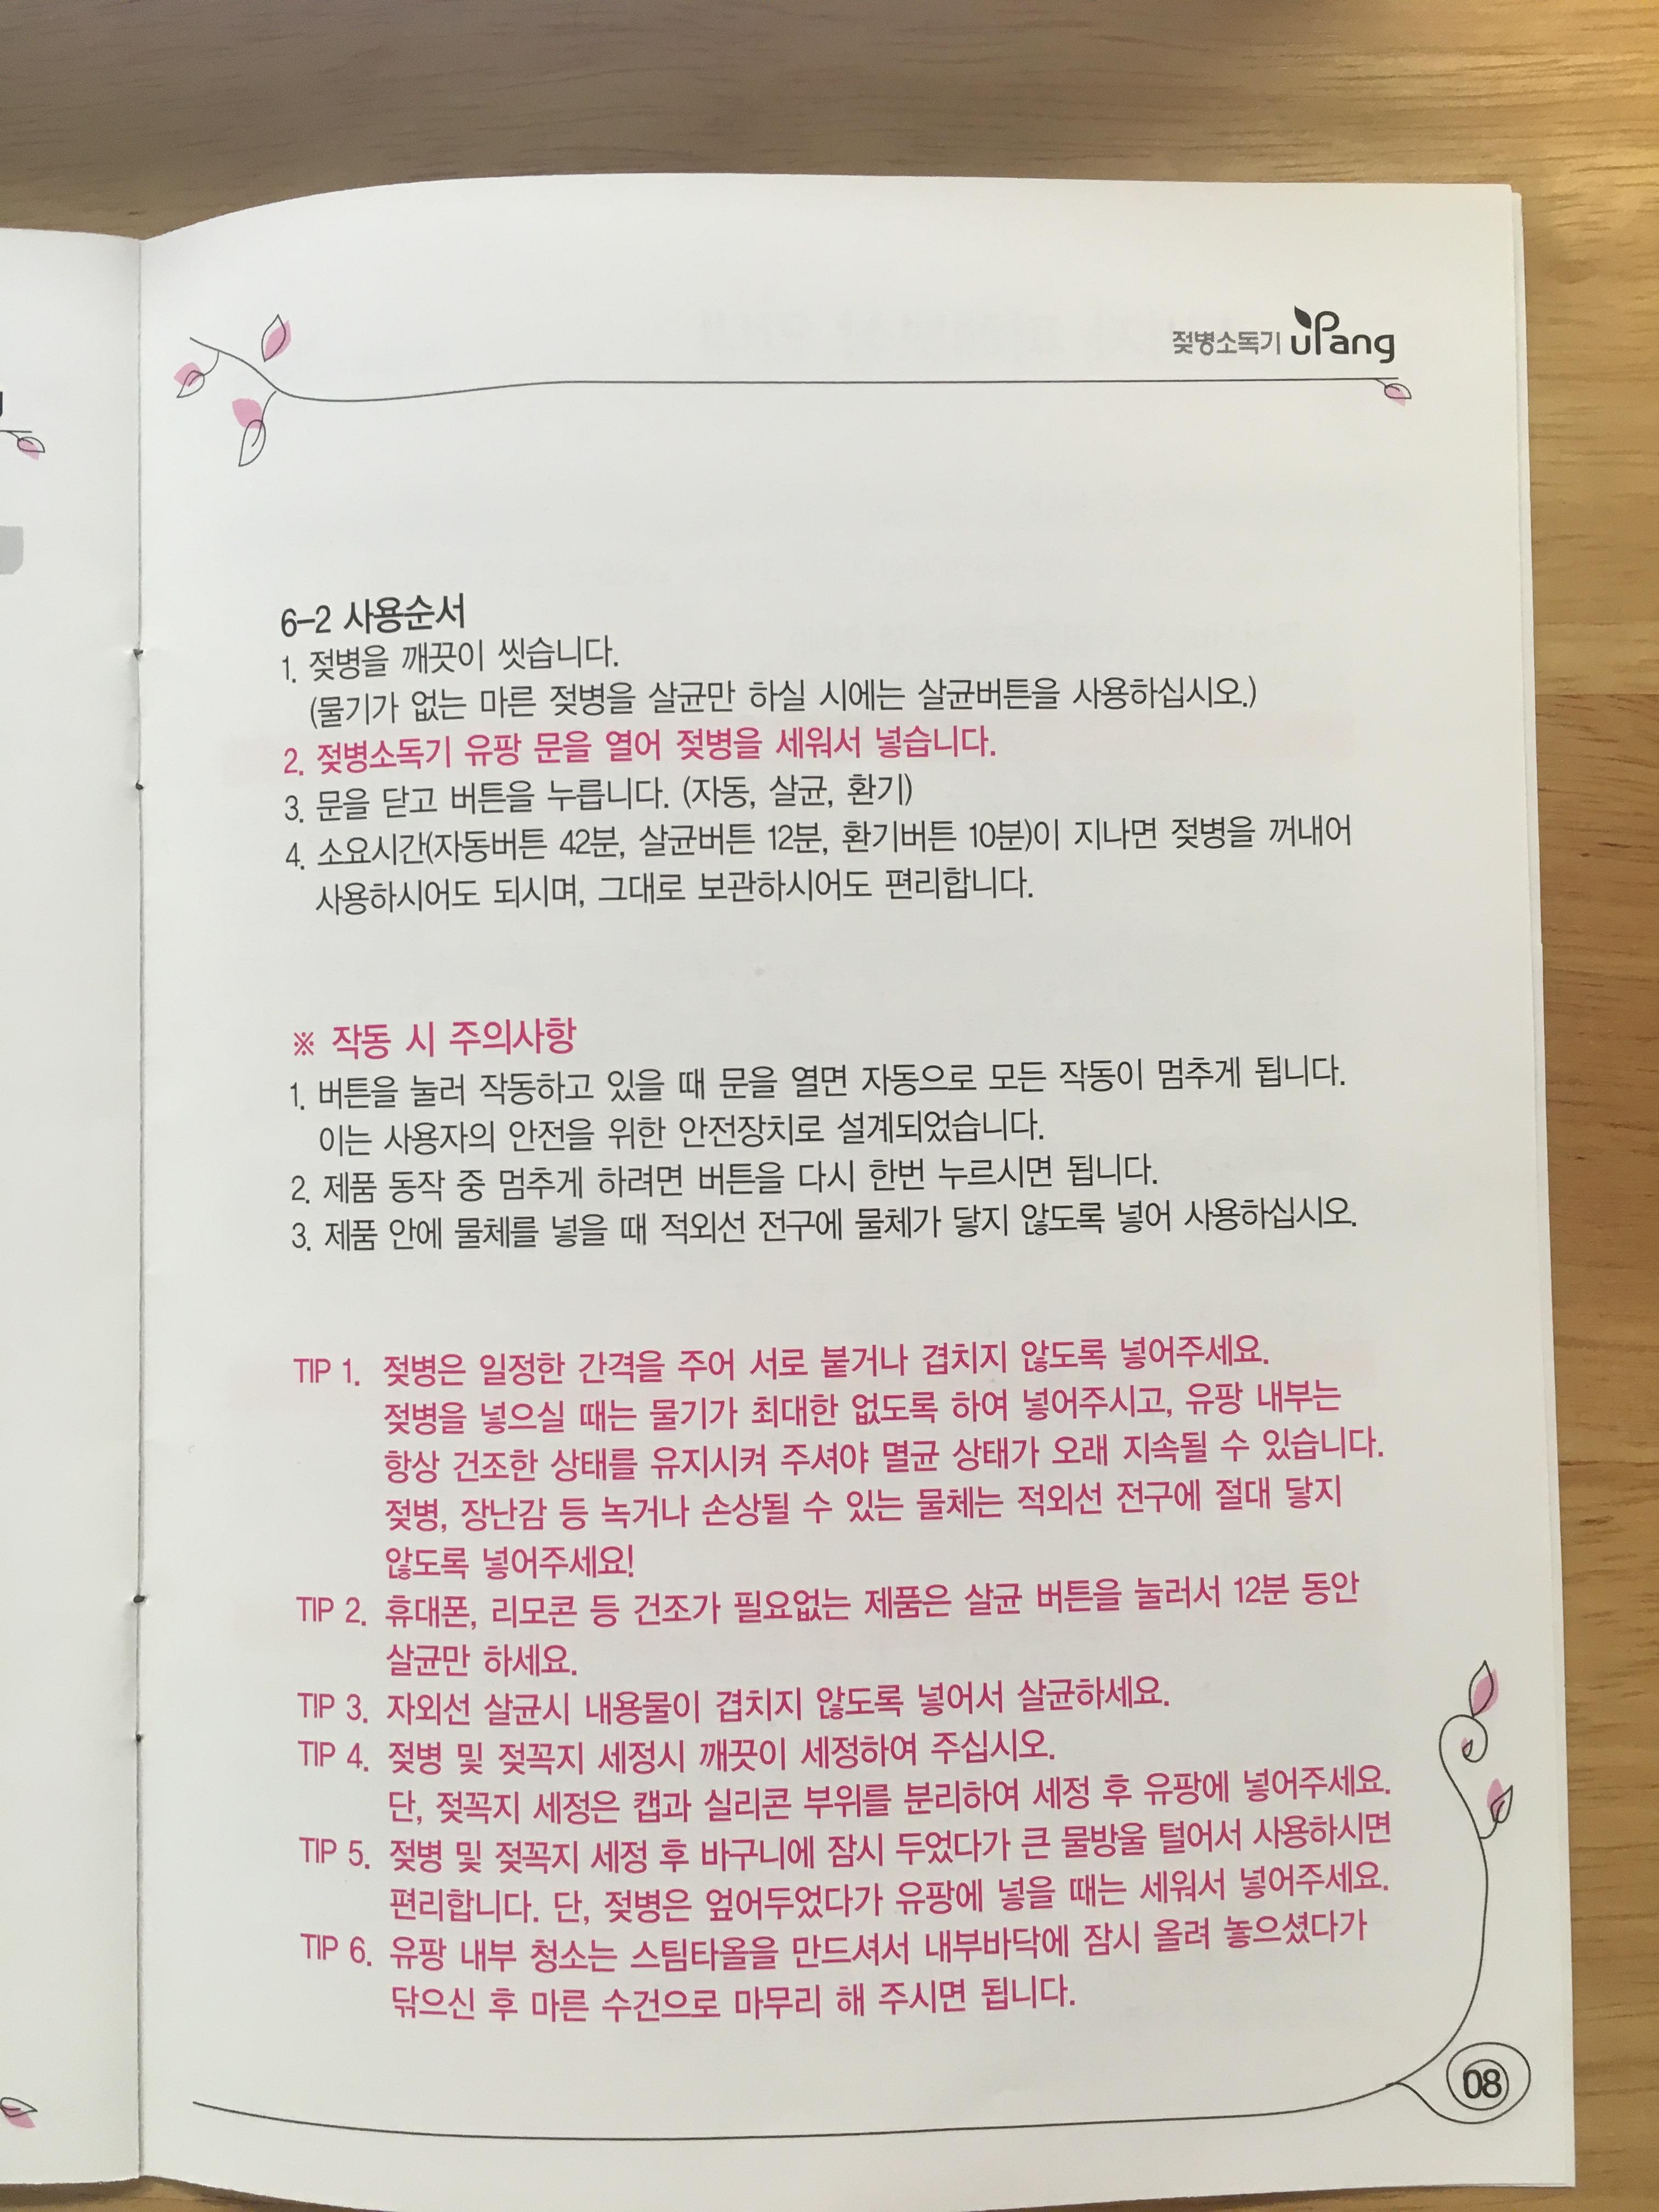 젖병소독기 uPang
6-2 사용순서
1. 젖병을 깨끗이 씻습니다.
(물기가 없는 마른 젖병을 살균만 하실 시에는 살균버튼을 사용하십시오.)
2. 젖병소독기 유팡 문을 열어 젖병을 세워서 넣습니다.
3. 문을 닫고 버튼을 누릅니다. (자동, 살균, 환기)
4. 소요시간(자동버튼 42분, 살균버튼 12분, 환기버튼 10분)이 지나면 젖병을 꺼내어
사용하시어도 되시며, 그대로 보관하시어도 편리합니다.
※ 작동 시 주의사항
1. 버튼을 눌러 작동하고 있을 때 문을 열면 자동으로 모든 작동이 멈추게 됩니다.
이는 사용자의 안전을 위한 안전장치로 설계되었습니다.
2. 제품 동작 중 멈추게 하려면 버튼을 다시 한번 누르시면 됩니다.
3. 제품 안에 물체를 넣을 때 적외선 전구에 물체가 닿지 않도록 넣어 사용하십시오.
TIP 1. 젖병은 일정한 간격을 주어 서로 붙거나 겹치지 않도록 넣어주세요.
젖병을 넣으실 때는 물기가 최대한 없도록 하여 넣어주시고, 유팡 내부는
항상 건조한 상태를 유지시켜 주셔야 멸균 상태가 오래 지속될 수 있습니다.
젖병, 장난감 등 녹거나 손상될 수 있는 물체는 적외선 전구에 절대 닿지
않도록 넣어주세요!
TIP 2. 휴대폰, 리모콘 등 건조가 필요없는 제품은 살균 버튼을 눌러서 12분 동안
살균만 하세요.
TIP 3. 자외선 살균시 내용물이 겹치지 않도록 넣어서 살균하세요.
TIP 4. 젖병 및 젖꼭지 세정시 깨끗이 세정하여 주십시오.
단, 젖꼭지 세정은 캡과 실리콘 부위를 분리하여 세정 후 유팡에 넣어주세요.
TIP 5. 젖병 및 젖꼭지 세정 후 바구니에 잠시 두었다가 큰 물방울 털어서 사용하시면
편리합니다. 단, 젖병은 엎어두었다가 유팡에 넣을 때는 세워서 넣어주세요.
TIP 6. 유팡 내부 청소는 스팀타올을 만드셔서 내부바닥에 잠시 올려 놓으셨다가
닦으신 후 마른 수건으로 마무리 해 주시면 됩니다.
08